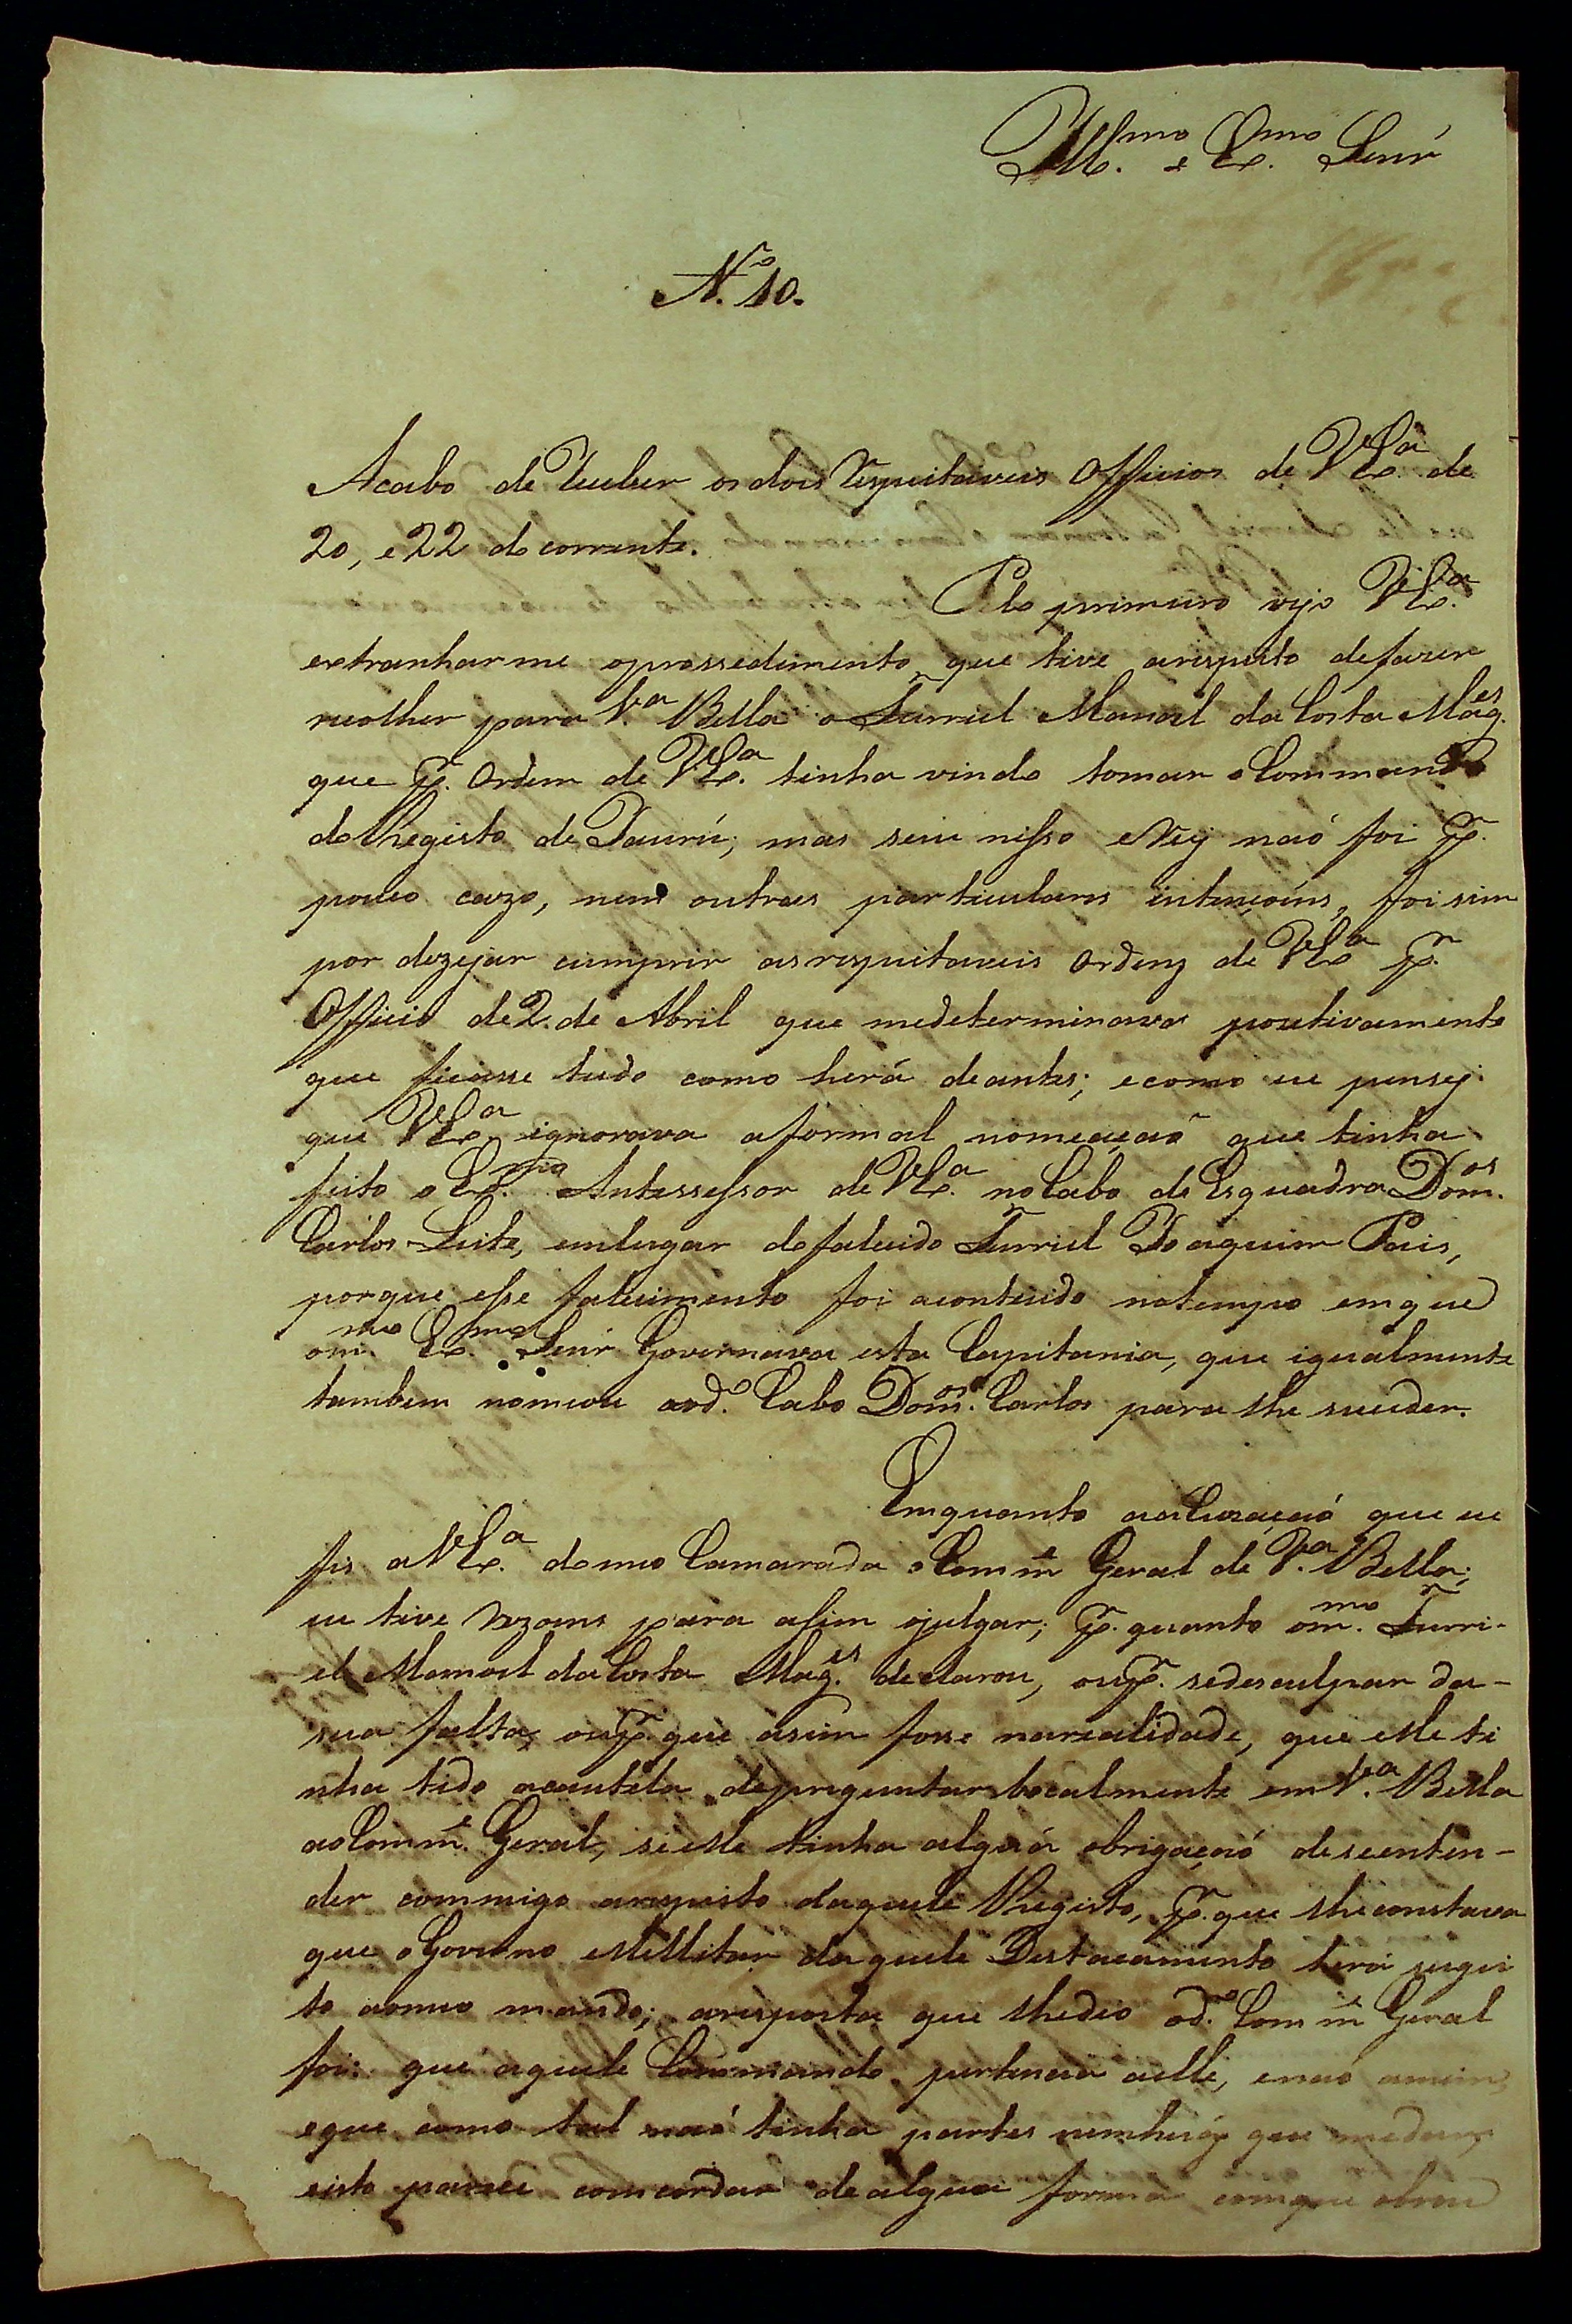 Ill.mo e Ex.mo Senr
N.ro 10.
Acabo de Receber os dois Respeitaveis Officios de V.Ex.a de
20, e 22 do corrente.
Pelo primeiro vejo V.Ex.a
extranharme oprossedimento que tive arespeito defazer
recolher para V.a Bella o Furriel Manoel da Costa Mag.es
que p.r Ordem de V.Ex.a tinha vindo tomar o Commando
do Rhegisto de Jaurú; mas se eu nisso errej naó foi p.r
pouco cazo, nem outras particulares intençoins, foi sim
por dezejar cumprir asrespeitaveis Ordenz de V.Ex.a p.r
Officio de 2. de Abril que medeterminava pozitivamente
que ficasse tudo como herá deantes; ecomo eu pensej
que V.Ex.a ignorava aformal nomeaçaõ que tinha
feito o Ex.mo Antessessor de V.Ex.a no Cabo de Esquadra Dom.os
Carlos Leite, emlugar do falecido Furriel Joaquim Pais,
porque esse falecimento foi acontecido notempo emque
om.mo Ex.mo Senr Governava esta Capitania, que igualmente
tambem nomeou aod.o Cabo Dom.os Carlos para lhe suceder.
Emquanto aacuzaçaó que eu
fis a V.Ex.a domeo Camarada o Comm.e Geral de V.a Bella;
eu tive Rezoens para asim ojulgar; p.r quanto om.mo Furri-
el Manoel da Costa Mag.es declarou, oup.r sedesculpar da-
sua falta, oup.r que asim fosse narealidade, que elle ti
nha tido acautela deperguntar bocalmente em V.a Bella
ao Comm.e Geral, se elle tinha alguã obrigaçaó deseenten-
der commigo arespeito daquele Rhegisto, p.r que lheconstava
que o Governo Millitar daquele Destacamento herá sugei
to aomeo mando; aresposta que lhedeo od.o Comm.e Geral
foi: que aquele Commando pertencia aelle, enaó amim,
eque como tal naó tinha partes nenhuãz que medar,
eisto parece concordar dealgua forma comque obrou